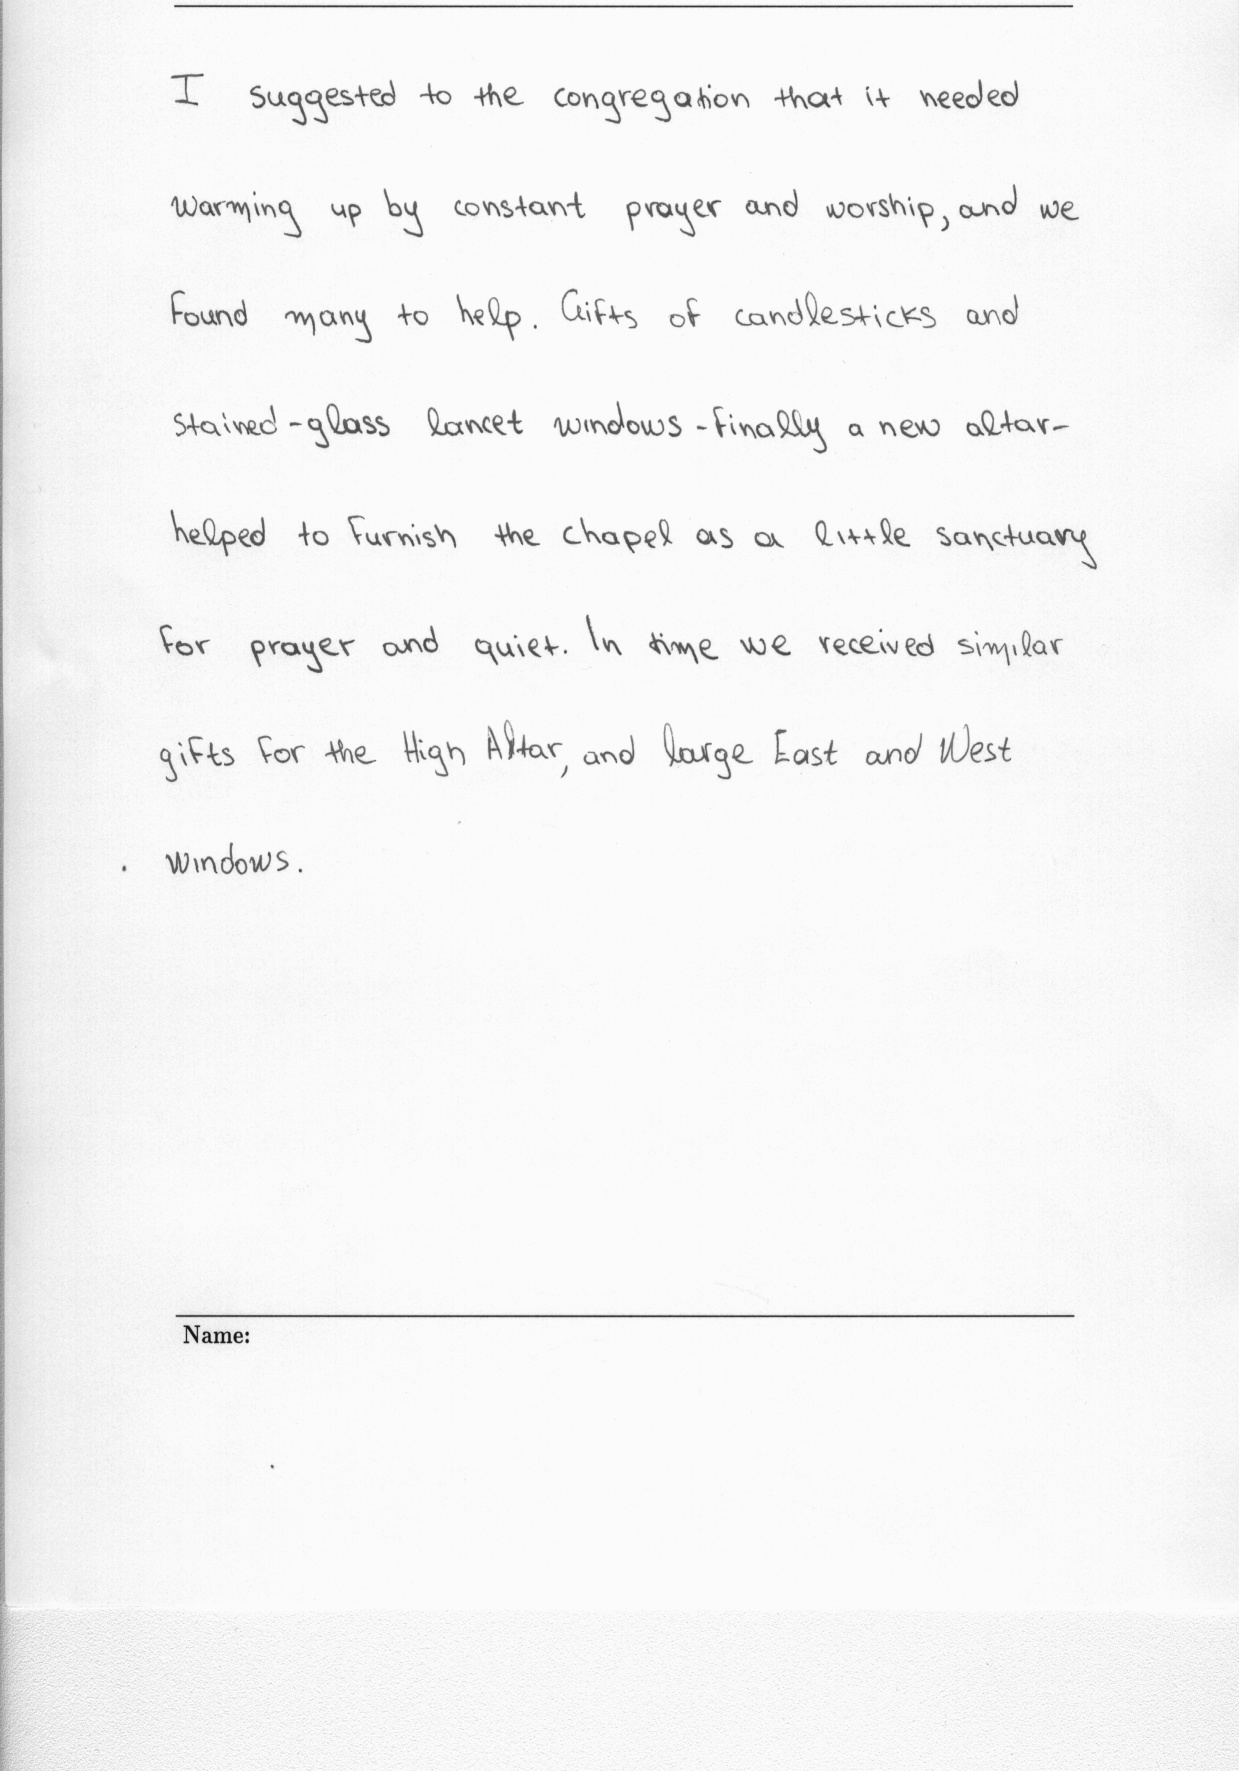 I suggested to the congregation that it needed
warming up by constant prayer and worship, and we
found many to help. Gifts of candlesticks and
stained-glass lancet windows - finally a new altar-
helped to furnish the chapel as a little sanctuary
for prayer and quiet. In time we received similar
gifts for the High Altar, and large East and West
windows.
Name: